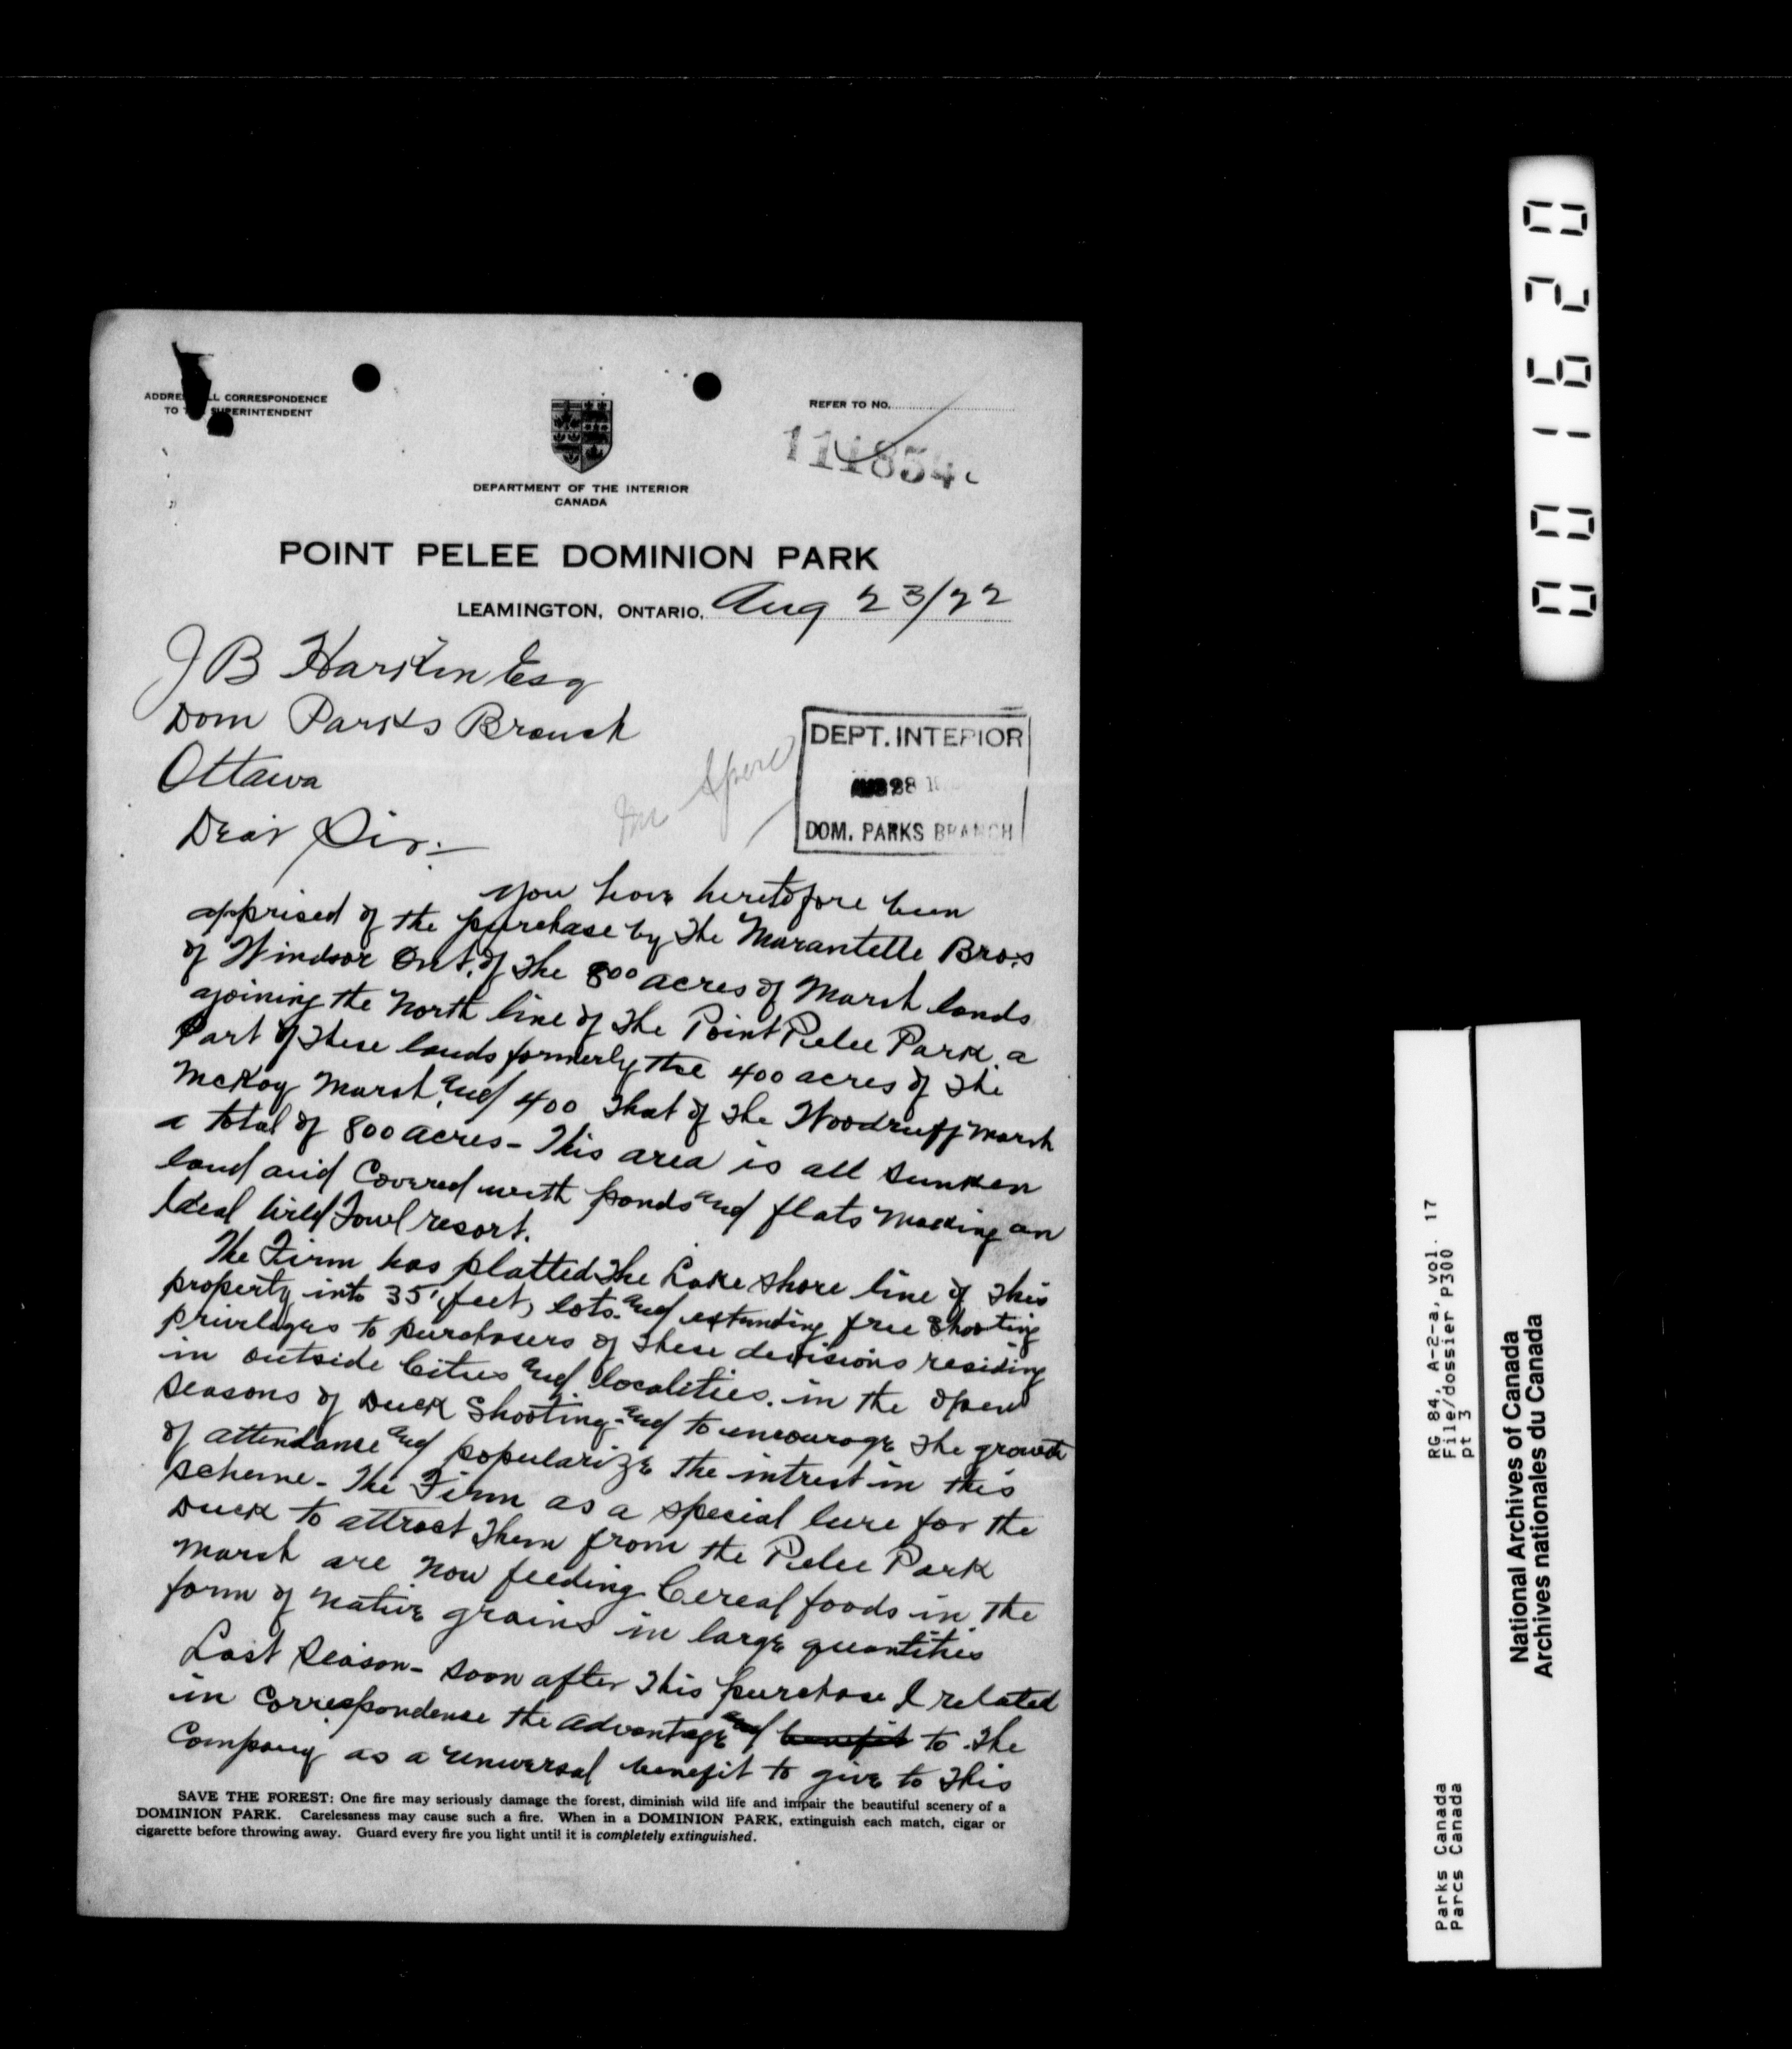 ADDRE LL CORRESPONDENCE
TO T SUPERINTENDENT
REFER TO NO.
111854
DEPARTMENT OF THE INTERIOR
CANADA
POINT PELEE DOMINION PARK
LEAMINGTON, ONTARIO, Aug 23/22
J B Harkin Esq
Dom Parks Branch
Ottawa
DEPT. INTERIOR
28
DOM. PARKS BRANCH
Dear Sir:—
you have heretofore been
apprised of the purchase by the Marantette Bros
of Windsor Ont. of the 800 acres of Marsh lands
ajoining the North line of the Point Pelee Park. a
Part of these lands formerly the 400 acres of the
McKoy Marsh. and 400 that of the Woodruff Marsh
a total of 800 acres - This area is all sunken
land and Covered with ponds and flats Making an
Ideal Wild Fowl resort.
The Firm has platted the Lake shore line of this
property into 35' feet, lots. and extending free Shooting
privileges to purchasers of these devisions residing
in outside Cities and localities. in the open
seasons of Duck Shooting - and to encourage the growth
of attendance and popularize the intrest in this
scheme - The Firm as a special lure for the
Duck to attract them from the Pelee Park
Marsh are now feeding Cereal foods in the
form of native grains in large quantities
Last Season - soon after this purchase I related
in Correspondence the advantage and benefit to the
Company as a universal benefit to give to this
SAVE THE FOREST: One fire may seriously damage the forest, diminish wild life and impair the beautiful scenery of a
DOMINION PARK. Carelessness may cause such a fire. When in a DOMINION PARK, extinguish each match, cigar or
cigarette before throwing away. Guard every fire you light until it is completely extinguished.
001620
RG 84, A-2-a, vol. 17
File/dossier P300
pt 3
Parks Canada
Parcs Canada
National Archives of Canada
Archives nationales du Canada